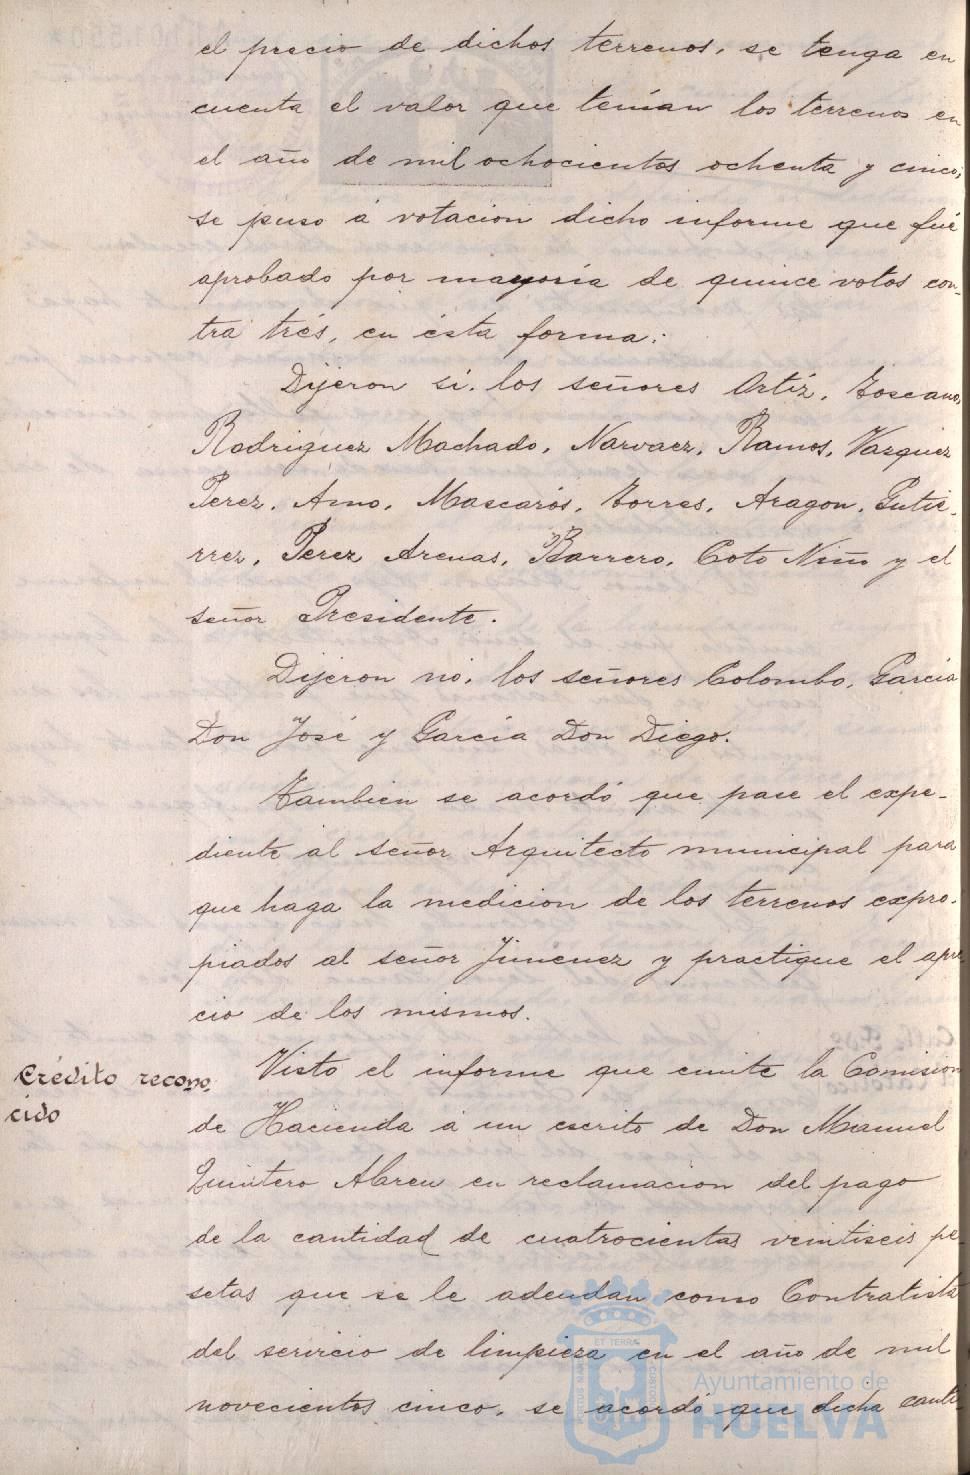 el precio de dichos terrenos, se tenga en
cuenta el valor que tenían los terrenos en
el año de mil ochocientos ochenta y cinco,
se puso á votacion dicho informe que fué
aprobado por mayoría de quince votos con-
tra trés, en ésta forma:
Dijeron si, los señores Ortíz, Toscano,
Rodriguez Machado, Narvaez, Ramos, Vazquez
Perez, Amo, Mascarós, Torres, Aragon, Gutie-
rrez, Perez Arenas, Barrero, Coto Niño y el
señor Presidente.
Dijeron no, los señores Colombo, García
Don José y García Don Diego.
Tambien se acordó que pase el expe-
diente al señor Arquitecto municipal para
que haga la medicion de los terrenos expro-
piados al señor Jimenez y practique el apre-
cio de los mismos.
Crédito recono-
cido
Visto el informe que emite la Comision
de Hacienda á un escrito de Don Manuel
Quintero Abreu en reclamacion del pago
de la cantidad de cuatrocientas veintiseis pe-
setas que se le adeudan como Contratista
del servicio de limpieza en el año de mil
novecientos cinco, se acordó que dicha canti-
Ayuntamiento de
HUELVA